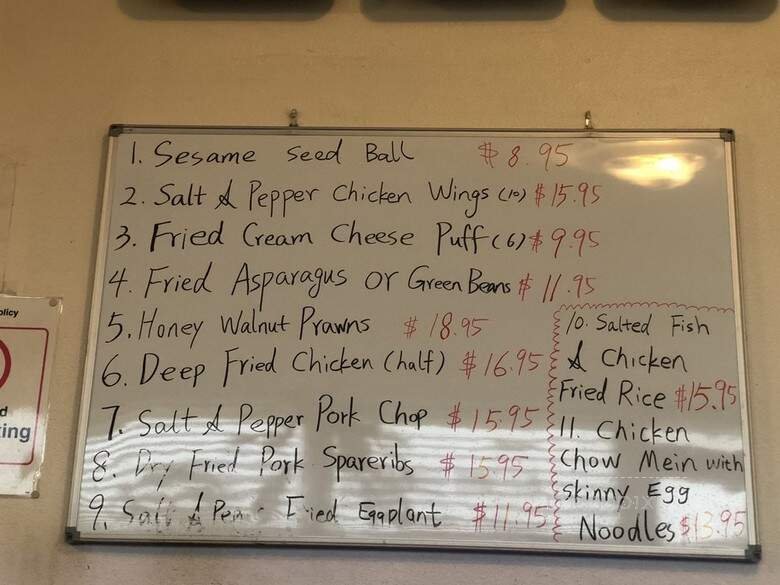 1. Sesame Seed Ball $8.95
2. Salt & Pepper Chicken Wings (10) $15.95
3. Fried Cream Cheese Puff (6) $9.95
4. Fried Asparagus or Green Beans $11.95
5. Honey Walnut Prawns $18.95
6. Deep Fried Chicken (half) $16.95
7. Salt & Pepper Pork Chop $15.95
8. Dry Fried Pork Spareribs $15.95
9. Salt & Fried Eggplant $11.95
10. Salted Fish
& Chicken
Fried Rice $15.95
11. Chicken
Chow Mein with
skinny Egg
Noodles $13.95
olicy
d
ing